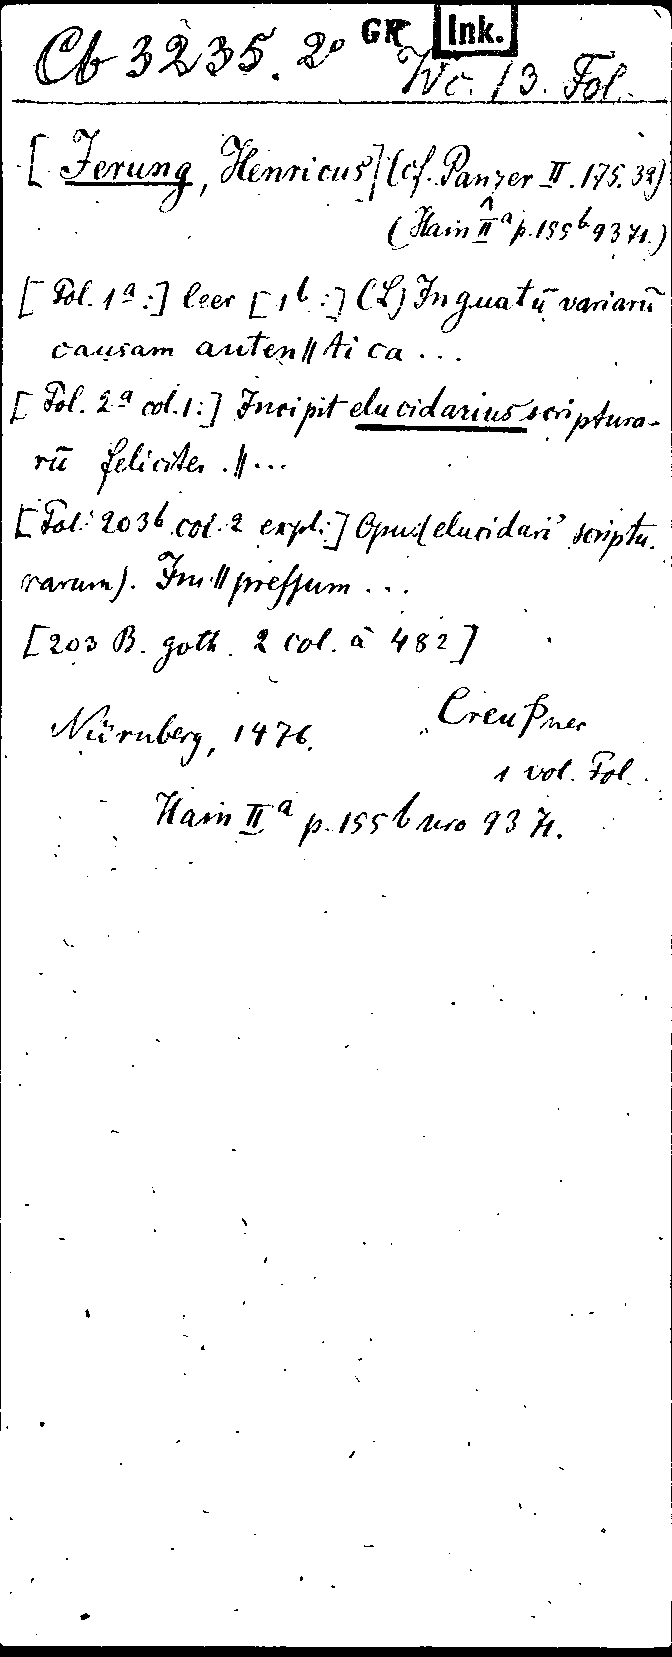 Cb 3235. 2° GK Ink.
Wc. 13. Fol.
[Jerung, Henricus] (cf. Panzer II. 175. 39)
(Hain IIª p. 155b 9371.)
[Fol. 1ª:] leer [1b:] (L) Inguatū variarū
causam auten||tica...
[Fol. 2ª col. 1:] Incipit elucidarius scriptura-
rū feliciter. ||...
[Fol. 203b col. 2 expl:] Opus (elucidari' scriptu-
rarum). Im||pressum...
[203 B. goth. 2 col. à 48 z]
Nürnberg, 1476. Creußner
1 vol. Fol.
Hain IIª p. 155b nro 9371.